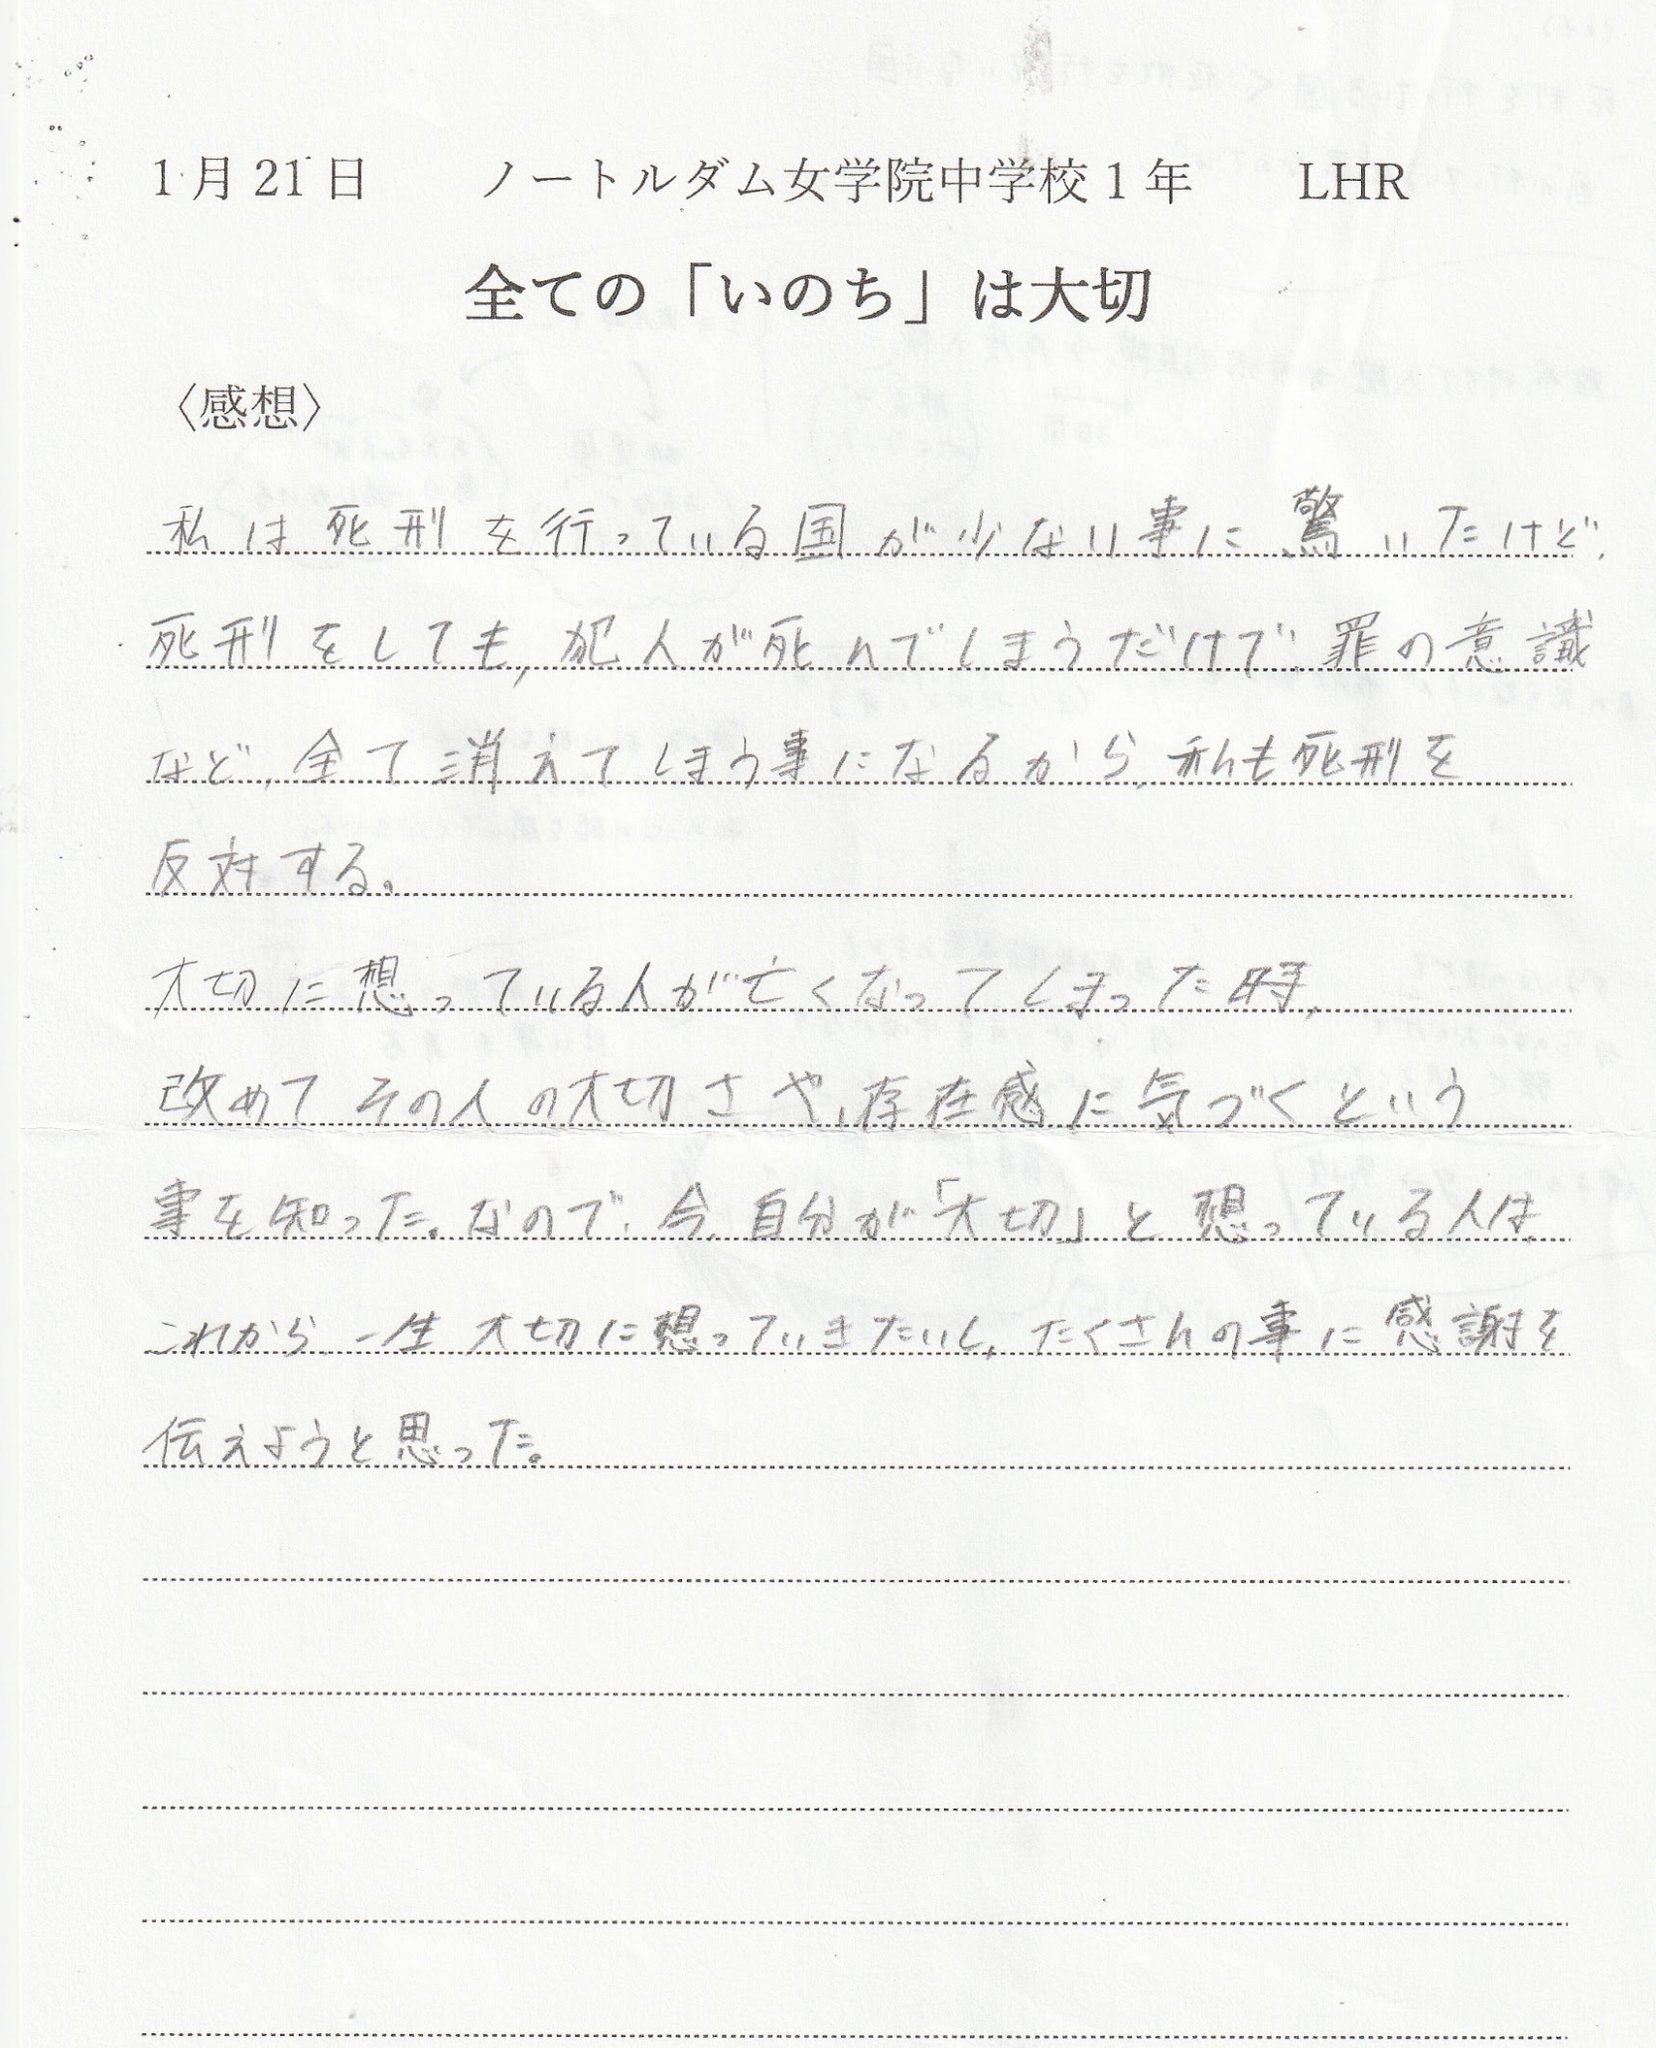 1月21日　ノートルダム女学院中学校1年　LHR
全ての「いのち」は大切
〈感想〉
私は死刑を行っている国が少ない事に驚いたけど、
死刑をしても、犯人が死んでしまうだけで、罪の意識
など、全て消えてしまう事になるから、私も死刑を
反対する。
大切に想っている人が亡くなってしまった時、
改めてその人の大切さや、存在感に気づくという
事を知った。なので、今、自分が「大切」と想っている人は、
これから、一生大切に想っていきたいし、たくさんの事に感謝を
伝えようと思った。